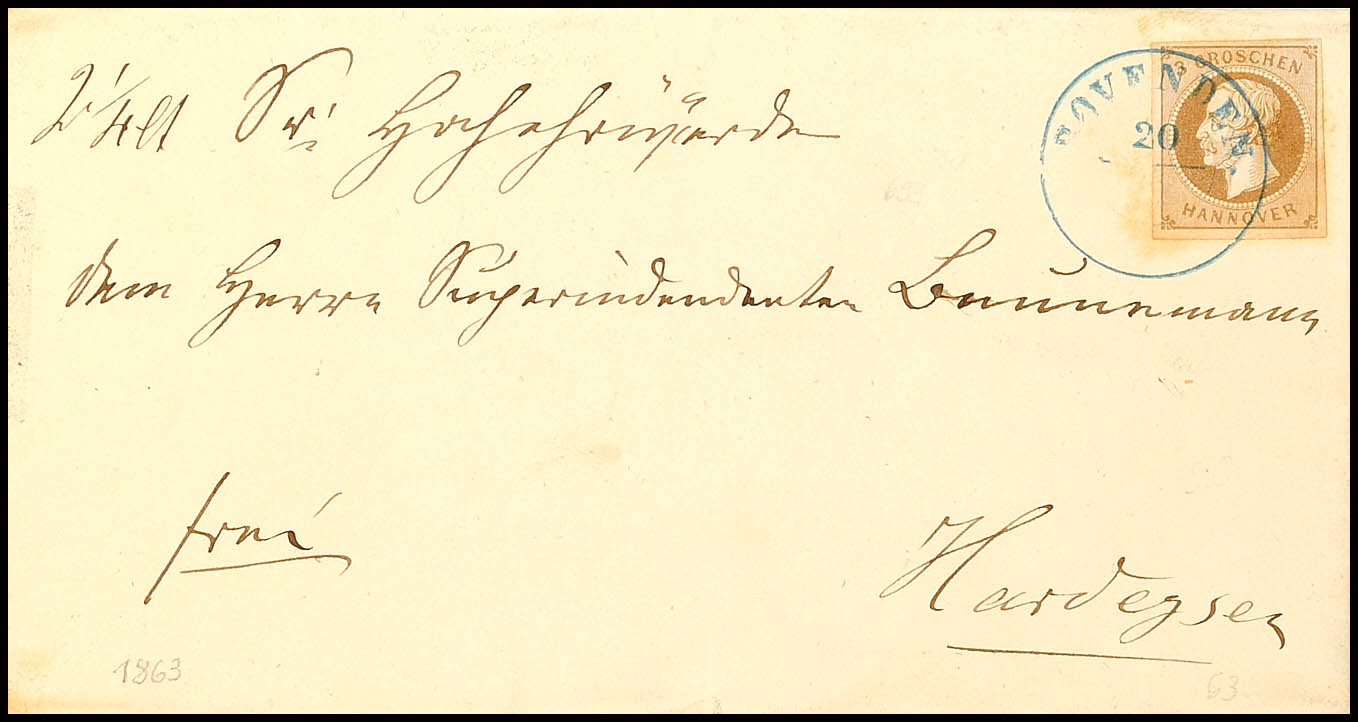 3 GROSCHEN
BOVENDEN
20
HANNOVER
Sr. Hochehrwürden
dem Herrn Superindendenten Baunemann
frei
Hardegsen
1863
63